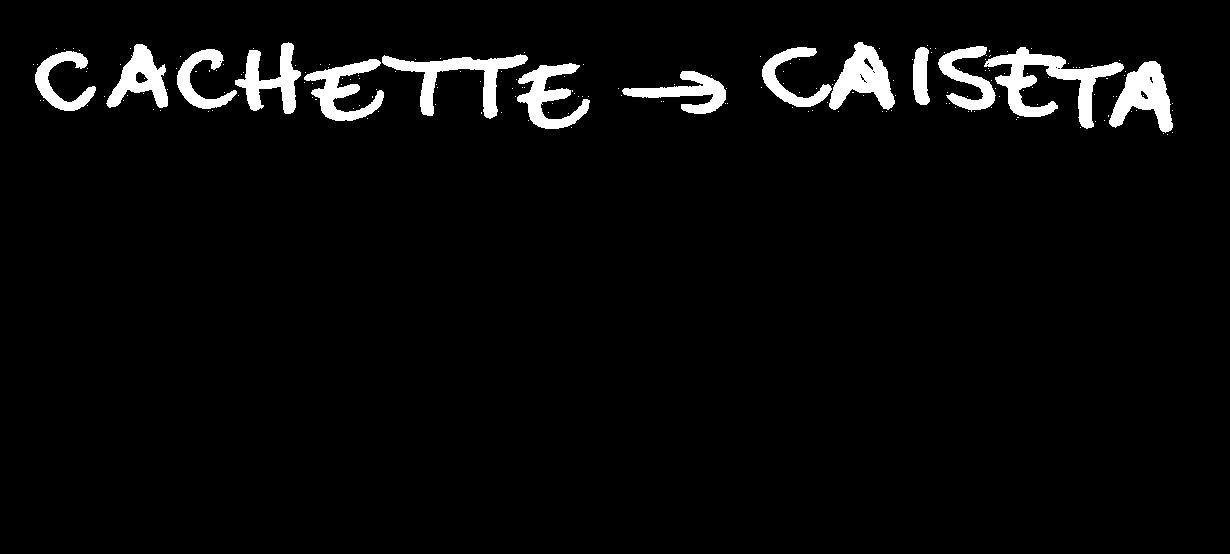 CACHETTE → CAISETA